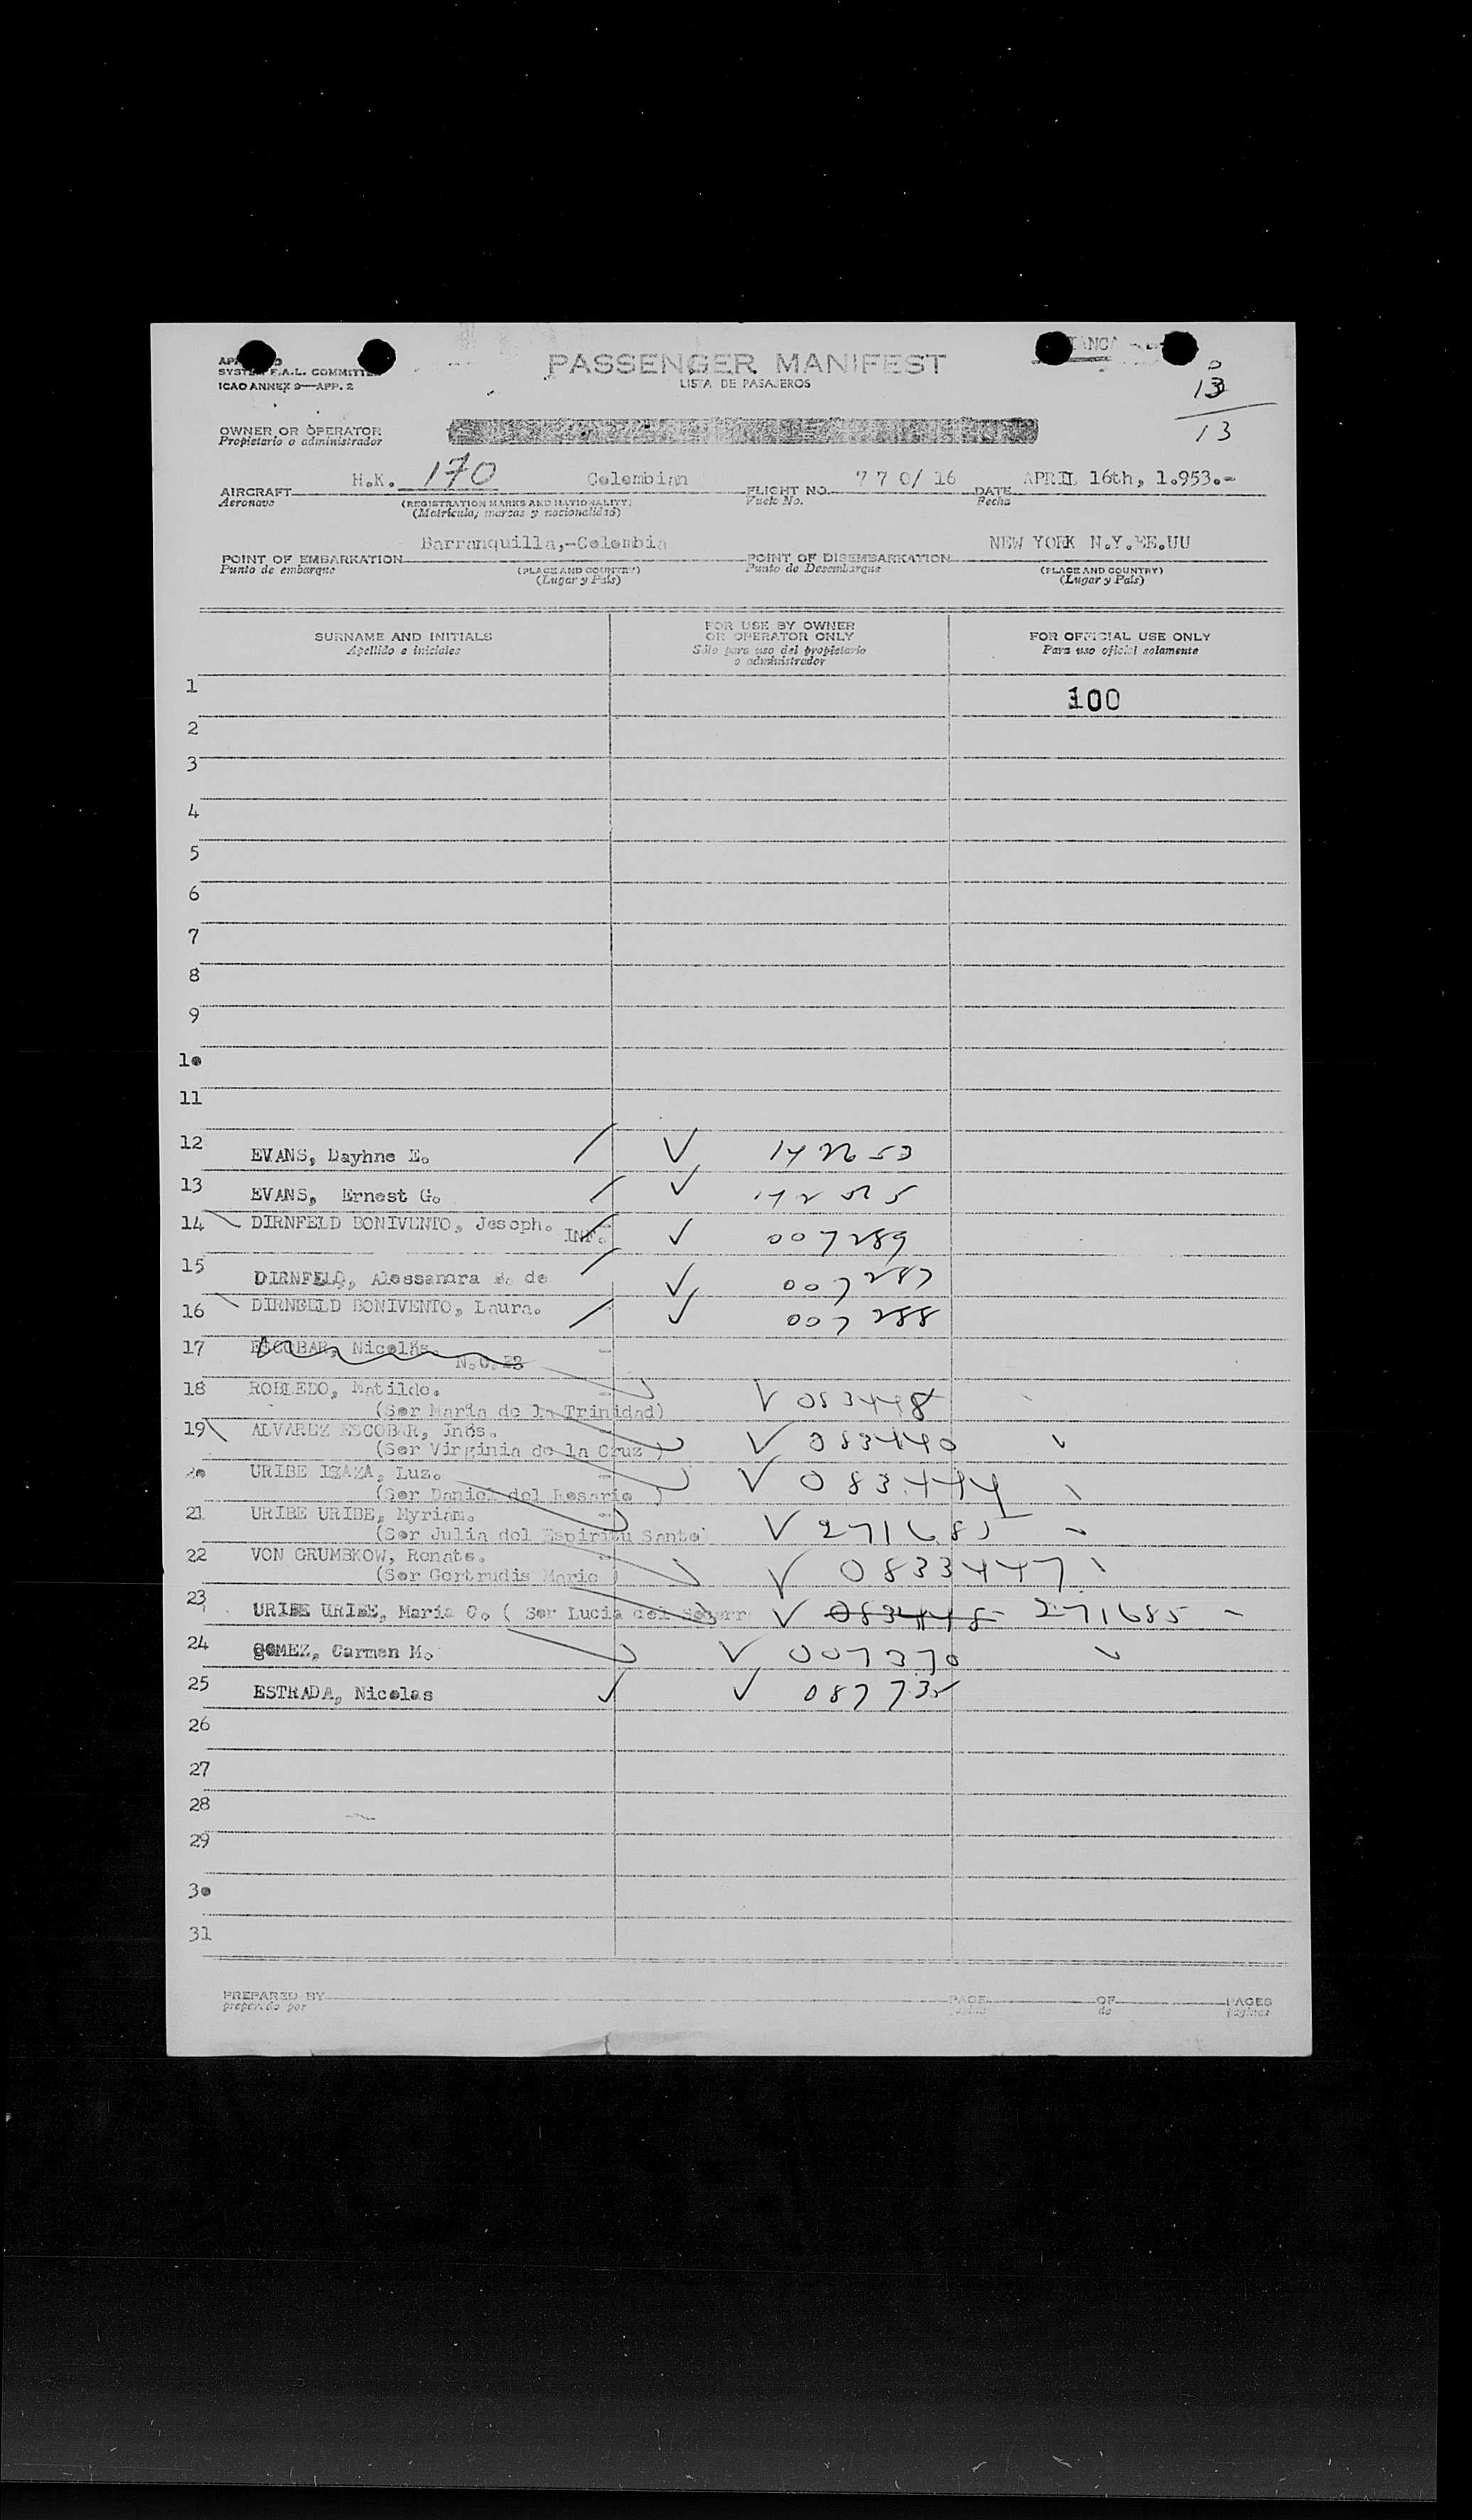 PASSENGER MANIFEST
LISTA DE PASAJEROS
SYSTEM F.A.L. COMMITTEE
ICAO ANNEX 9—APP. 2
13
13
OWNER OR OPERATOR
Propietario o administrador
H.K. 170 Colombian 7 7 0/ 16 APRIL 16th, 1.953.-
AIRCRAFT FLIGHT NO. DATE
Aeronave (REGISTRATION MARKS AND NATIONALITY) Vuelo No. Fecha
(Matricula, marcas y nacionalidad)
Barranquilla,-Colombia NEW YORK N.Y.EE.UU
POINT OF EMBARKATION POINT OF DISEMBARKATION
Punto de embarque (PLACE AND COUNTRY) Punto de Desembarque (PLACE AND COUNTRY)
(Lugar y País) (Lugar y País)
SURNAME AND INITIALS FOR USE BY OWNER OR OPERATOR ONLY FOR OFFICIAL USE ONLY
Apellido e iniciales Sólo para uso del propietario o administrador Para uso oficial solamente
1 100
2
3
4
5
6
7
8
9
10
11
12 EVANS, Dayhne E.
13 EVANS, Ernest G.
14 DIRNFELD BONIVENTO, Jesoph. INF. 007289
15 DIRNFELD, Alessandra B. de 007287
16 DIRNGELD BONIVENTO, Laura. 007288
17 ESCOBAR, Nicolás.
18 ROBLEDO, Matilde. 083448
(Sor Maria de la Trinidad)
19 ALVAREZ ESCOBAR, Inés. 083440
(Sor Virginia de la Cruz )
20 URIBE IZAZA, Luz. 083444
(Sor Daniel del Rosario )
21 URIBE URIBE, Myriam. 271685
(Sor Julia del Espiritu Santo)
22 VON GRUMBKOW, Renate. 0833447
(Sor Gertrudis Marie )
23 URIBE URIBE, Maria C. ( Sor Lucia del Socorr 083448 271685
24 GOMEZ, Carmen M. 007370
25 ESTRADA, Nicolas 087735
26
27
28
29
30
31
PREPARED BY PAGE OF PAGES
preparado por página de páginas